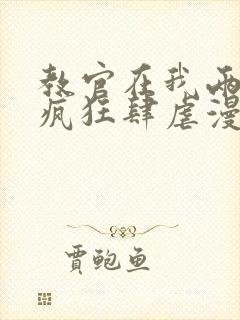 教官在我两
疯狂肆虐漫
贾鲍鱼